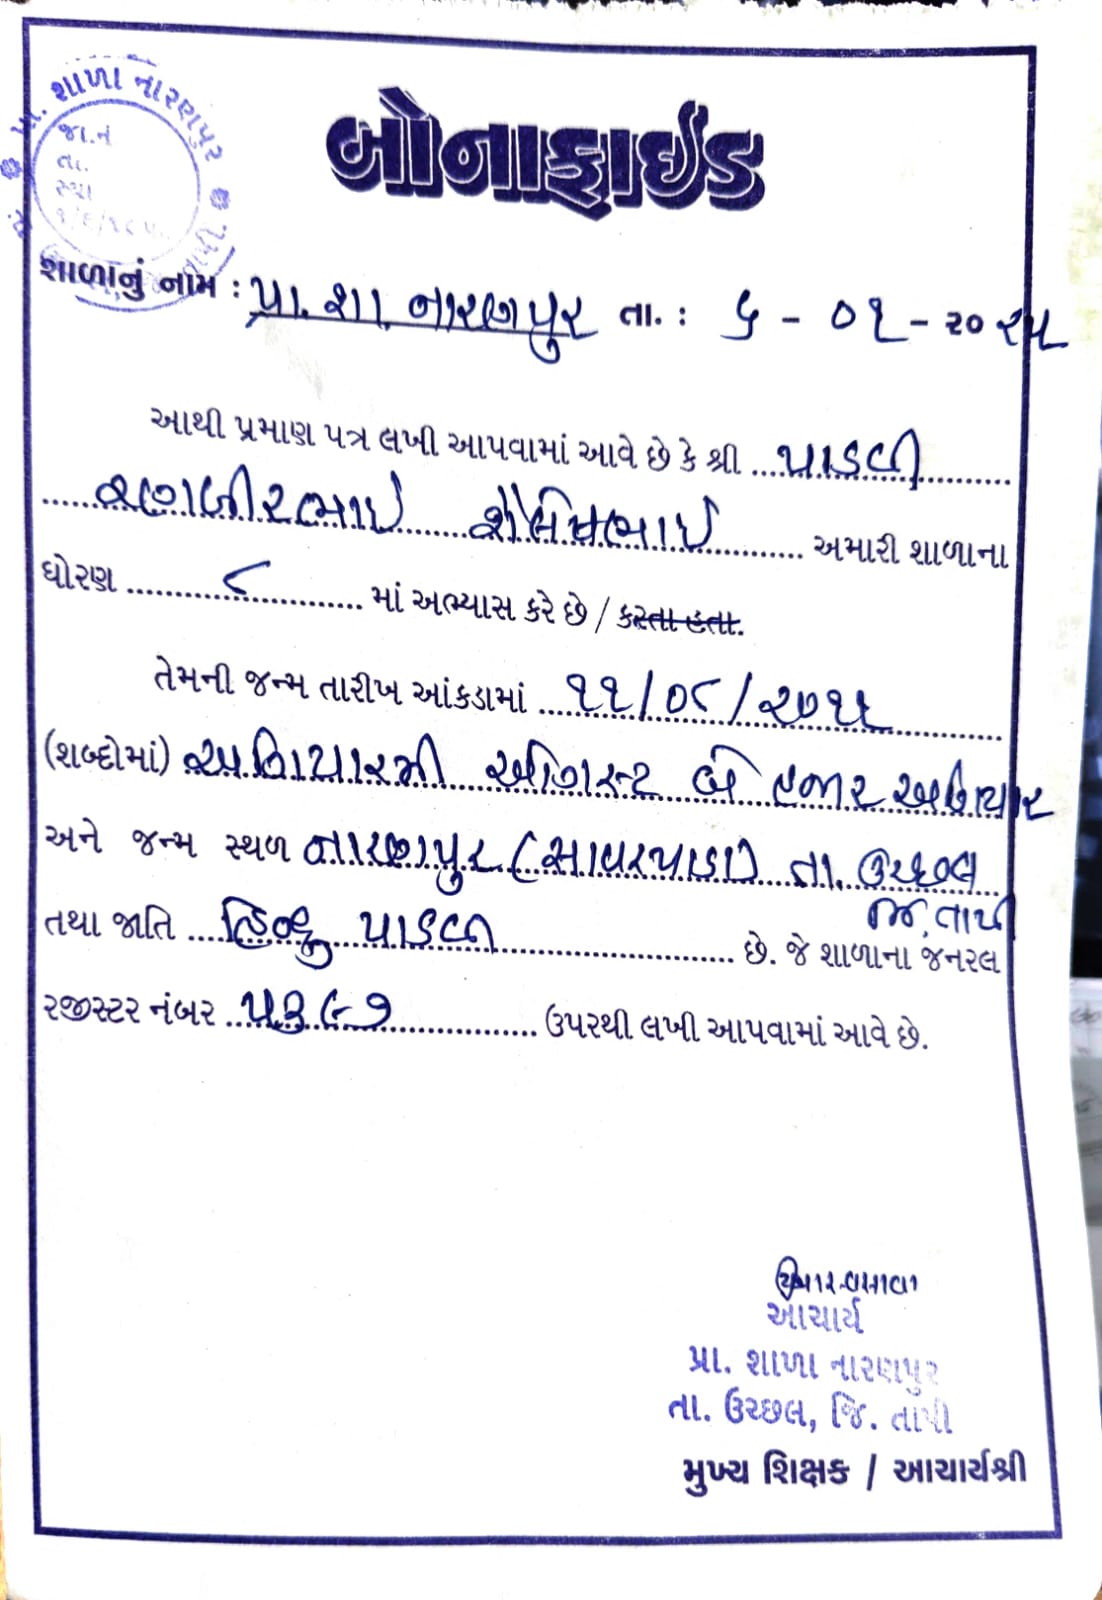 પ્રા. શાળા નારણપુર
જા.નં
તા.
સ્થા
બોનાફાઈડ
શાળાનું નામ : પ્રા. શા. નારણપુર તા. : ૬ - ૦૧ - ૨૦૨૫
આથી પ્રમાણ પત્ર લખી આપવામાં આવે છે કે શ્રી પાડવી
રણબીરભાઈ શૈલેષભાઈ અમારી શાળાના
ધોરણ ૮ માં અભ્યાસ કરે છે / કરતા હતા.
તેમની જન્મ તારીખ આંકડામાં ૧૧/૦૮/૨૦૧૧
(શબ્દોમાં) અગિયારમી ઓગસ્ટ બે હજાર અગિયાર
અને જન્મ સ્થળ નારણપુર (સાવરપાડા) તા. ઉચ્છલ
જિ. તાપી
તથા જાતિ હિન્દુ પાડવી છે. જે શાળાના જનરલ
રજીસ્ટર નંબર ૫૩૯૭ ઉપરથી લખી આપવામાં આવે છે.
આચાર્ય
પ્રા. શાળા નારણપુર
તા. ઉચ્છલ, જિ. તાપી
મુખ્ય શિક્ષક / આચાર્યશ્રી